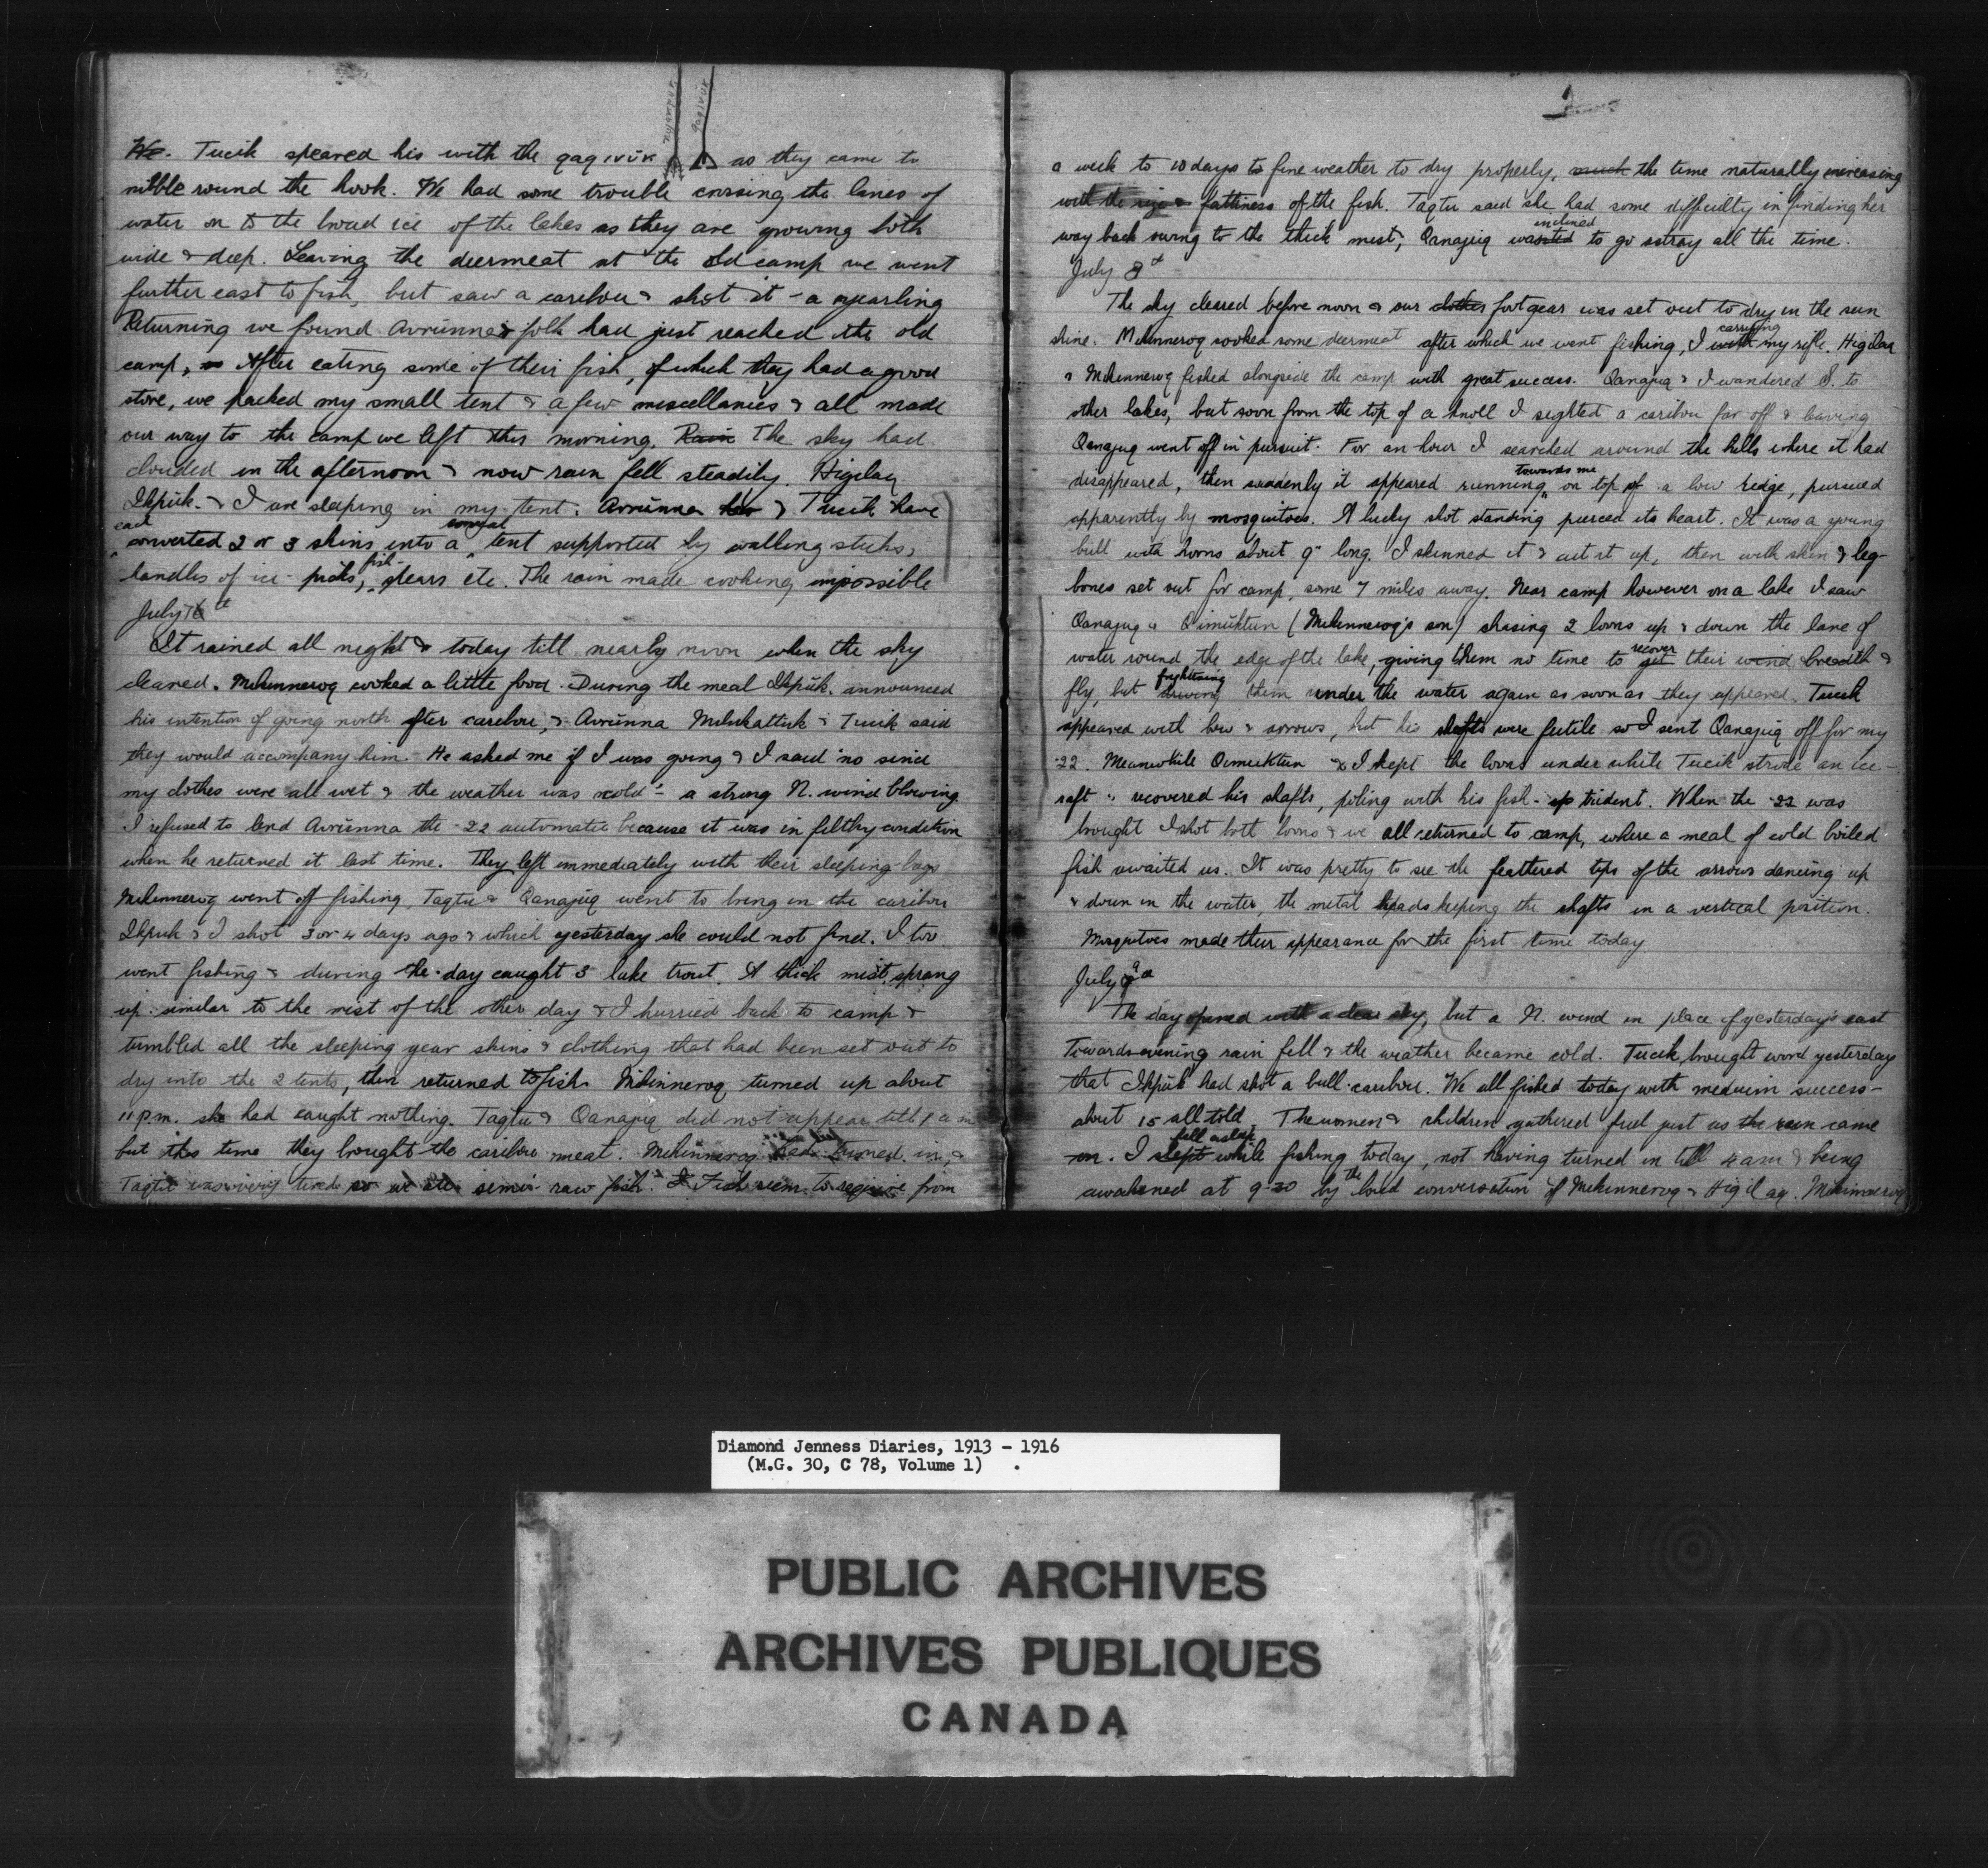 nuijamput
qaqivuk
We. Tucik speared his with the qaqivuk as they came to
nibble round the hook. We had some trouble crossing the lanes of
water on to the broad ice of the lakes as they are growing both
wide & deep. Leaving the deermeat at the old camp we went
further east to fish, but saw a caribou & shot it - a yearling
Returning we found Avrunna's folk had just reached the old
camp, After eating some of their fish, of which they had a good
store, we packed my small tent & a few miscellanies & all made
our way to the camp we left this morning. Rain The sky had
clouded in the afternoon & now rain fell steadily. Higilaq
Ikpuk & I are sleeping in my tent. Avrunna & Tucik have
each conical
converted 2 or 3 skins into a tent supported by walking sticks,
fish-
handles of ice-picks, spears etc. The rain made cooking impossible
July
It rained all night & today till nearly noon when the sky
cleared. Mikinneroq cooked a little food. During the meal Ikpuk announced
his intention of going north after caribou, & Avrunna Milukattuk & Tucik said
they would accompany him. He asked me if I was going & I said no since
my clothes were all wet & the weather was cold - a strong N. wind blowing
I refused to lend Avrunna the .22 automatic because it was in filthy condition
when he returned it last time. They left immediately with their sleeping-bags
Mikinneroq went off fishing, Taqtu & Qanajuq went to bring in the caribou
Ikpuk & I shot 3 or 4 days ago & which yesterday she could not find. I too
went fishing & during the day caught 3 lake trout. A thick mist sprang
up similar to the mist of the other day & I hurried back to camp &
tumbled all the sleeping gear skins & clothing that had been set out to
dry into the 2 tents, then returned to fish. Mikinneroq turned up about
11 p.m. she had caught nothing. Taqtu & Qanajuq did not appear till 1 a m
but this time they brought the caribou meat. Mikinneroq had turned in, &
Taqtu was very tired so we ate semi-raw fish. Fish seem to require from
a week to 10 days fine weather to dry properly, the time naturally increasing
with the size & fattiness of the fish. Taqtu said she had some difficulty in finding her
inclined
way back owing to the thick mist, Qanajuq wanted to go astray all the time.
July 8
The sky cleared before noon & our clothes footgear was set out to dry in the sun
carrying
shine. Mikinneroq cooked some deermeat after which we went fishing, I with my rifle. Higilaq
& Mikinneroq fished alongside the camp with great success. Qanajuq & I wandered S. to
other lakes, but soon from the top of a knoll I sighted a caribou far off & leaving
Qanajuq went off in pursuit. For an hour I searched around the hills where it had
towards me
disappeared, then suddenly it appeared running on top of a low ridge, pursued
apparently by mosquitoes. A lucky shot standing pierced its heart. It was a young
bull with horns about 9" long. I skinned it & cut it up, then with skin & leg-
bones set out for camp, some 7 miles away. Near camp however on a lake I saw
Qanajuq & Qimuktun (Mikinneroq's son) chasing 2 loons up & down the lane of
recover
water round the edge of the lake, giving them no time to get their wind breadth &
frightening
fly, but driving them under the water again as soon as they appeared. Tucik
appeared with bow & arrows, but his shafts were futile so I sent Qanajuq off for my
.22. Meanwhile Qimuktun & I kept the loons under while Tucik strode an ice-
raft & recovered his shafts, poling with his fish-sp trident. When the .22 was
brought I shot both loons & we all returned to camp, where a meal of cold boiled
fish awaited us. It was pretty to see the feathered tips of the arrows dancing up
& down in the water, the metal heads keeping the shafts in a vertical position.
Mosquitoes made their appearance for the first time today
July 9
The day opened with a clear sky, but a N. wind in place of yesterday's east
Towards evening rain fell & the weather became cold. Tucik brought word yesterday
that Ikpuk had shot a bull caribou. We all fished today with medium success -
about 15 all told. The women & children gathered fuel just as the rain came
fell asleep
on. I slept while fishing today, not having turned in till 4 am & being
awakened at 9.30 by the loud conversation of Mikinneroq & Higilaq. Mikinneroq
Diamond Jenness Diaries, 1913 - 1916
(M.G. 30, C 78, Volume 1) .
PUBLIC ARCHIVES
ARCHIVES PUBLIQUES
CANADA